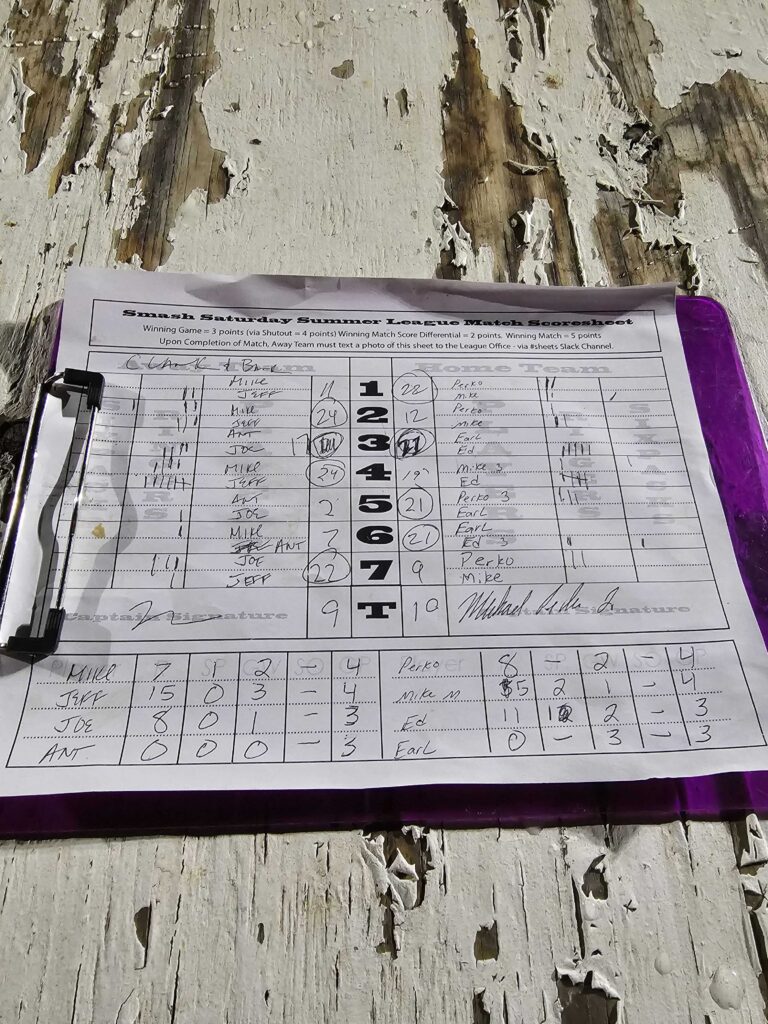 Smash Saturday Summer League Match Scoresheet
Winning Game = 3 points (via Shutout = 4 points) Winning Match Score Differential = 2 points. Winning Match = 5 points
Upon Completion of Match, Away Team must text a photo of this sheet to the League Office - via #sheets Slack Channel.
Home Team
Mike 11 1 22 Perko
Jeff Mike
Mike 24 2 12 Perko
Jeff Mike
Ant 17 3 21 Earl
Joe Ed
Mike 24 4 Mike 3
Jeff Ed
Ant 2 5 21 Perko 3
Joe Earl
Mike 7 6 21 Earl
Ant Ed 3
Joe 22 7 9 Perko
Jeff Mike
Captain Signature 9 T 10 Signature
Mike 7 SP 2 - 4 Perko 8 - 2 - 4
Jeff 15 0 3 - 4 Mike M 5 2 1 - 4
Joe 8 0 1 - 3 Ed 11 2 - 3
Ant 0 0 0 - 3 Earl 0 - 3 - 3